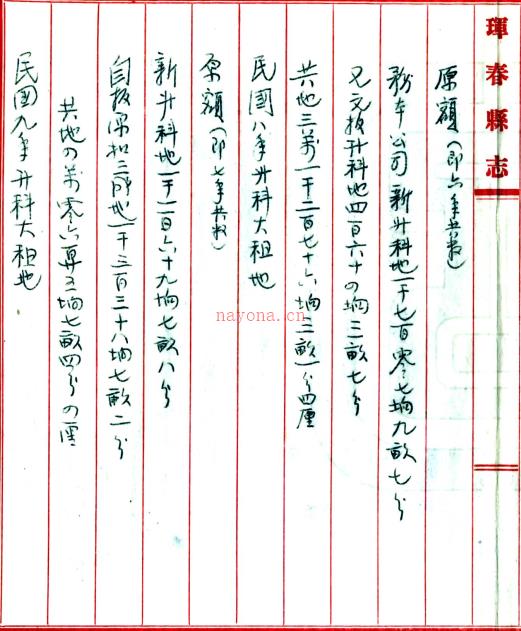 琿春縣志
原額（即六年共数）
務本公司新升科地一千七百零七垧九畝七分
又文报升科地四百六十の垧三畝七分
共地三萬一千二百七十六垧三畝一分四厘
民國八年升科大租地
原額（即七年共数）
新升科地一千一百六十九垧七畝八分
自报原扣二成地一千三百三十八垧七畝二分
共地の萬零六百垧七畝四分の厘
民國九年升科大祖地
nayona.cn